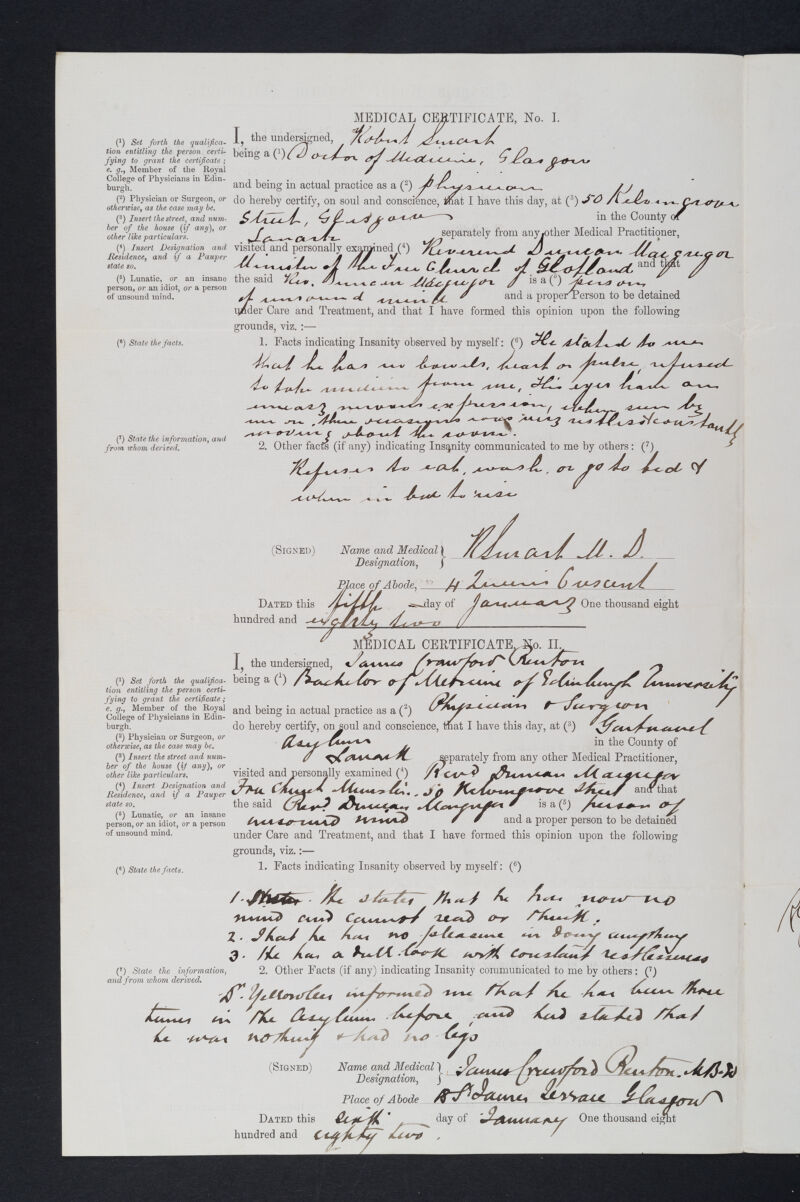 MEDICAL CERTIFICATE, No. I.
(1) Set forth the qualifica-
tion entitling the person certi-
fying to grant the certificate;
e. g., Member of the Royal
College of Physicians in Edin-
burgh.
(2) Physician or Surgeon, or
otherwise, as the case may be.
(3) Insert the street, and num-
ber of the house (if any), or
other like particulars.
(4) Insert Designation and
Residence, and if a Pauper
state so.
(5) Lunatic, or an insane
person, or an idiot, or a person
of unsound mind.
I, the undersigned, Robert Smart
being a (1) Doctor of Medicine, Glasgow
and being in actual practice as a (2) physician
do hereby certify, on soul and conscience, that I have this day, at (3) 50 Kelvingrove
Street, Glasgow in the County of
Lanark separately from any other Medical Practitioner,
visited and personally examined (4) Reverend Duncan Macgregor
Minister of the Free Church of Scotland and that
the said Rev. Duncan Macgregor is a (5) person
of unsound mind and a proper Person to be detained
under Care and Treatment, and that I have formed this opinion upon the following
grounds, viz. :—
(6) State the facts.
1. Facts indicating Insanity observed by myself: (6) He stated to me
that he has no bowels, heart or pulse, refused
to take medicine from me, His eyes have an
uneasy nervous expression, when seen by
me on three occasions was very restless & constantly
moving about the room.
(7) State the information, and
from whom derived.
2. Other facts (if any) indicating Insanity communicated to me by others: (7)
Refuses to eat, wash, or go to bed &
when in bed to rise
(SIGNED) Name and Medical Designation, R Smart M. D.
Place of Abode, 4 Queens Crescent
DATED this fifth day of January One thousand eight
hundred and eighty two
MEDICAL CERTIFICATE, No. II.
(1) Set forth the qualifica-
tion entitling the person certi-
fying to grant the certificate;
e. g., Member of the Royal
College of Physicians in Edin-
burgh.
(2) Physician or Surgeon, or
otherwise, as the case may be.
(3) Insert the street and num-
ber of the house (if any), or
other like particulars.
(4) Insert Designation and
Residence, and if a Pauper
state so.
(5) Lunatic, or an insane
person, or an idiot, or a person
of unsound mind.
I, the undersigned, James Crawford Renton
being a (1) Bachelor of Medicine of Edinburgh University
and being in actual practice as a (2) Physician & Surgeon
do hereby certify, on soul and conscience, that I have this day, at (3) Gartnavel
Asylum in the County of
Lanark separately from any other Medical Practitioner,
visited and personally examined (4) Revd Duncan Macgregor
Free Church Minister, 50 Kelvingrove Street and that
the said Revd. Duncan Macgregor is a (5) person of
unsound mind and a proper person to be detained
under Care and Treatment, and that I have formed this opinion upon the following
grounds, viz. :—
(6) State the facts.
1. Facts indicating Insanity observed by myself: (6)
1. He states that he has now no
mind and cannot read or think.
2. That he has no pleasure in doing anything
3. He has a dull look with constant restlessness
(7) State the information,
and from whom derived.
2. Other Facts (if any) indicating Insanity communicated to me by others: (7)
Dr. Yellowlees informed me that he has been three
times in the Asylum before, and had stated that
he was nothing & had no legs
(SIGNED) Name and Medical Designation, James Crawford Renton. M.B.
Place of Abode St James Terrace Glasgow
DATED this sixth day of January One thousand eight
hundred and eighty two.